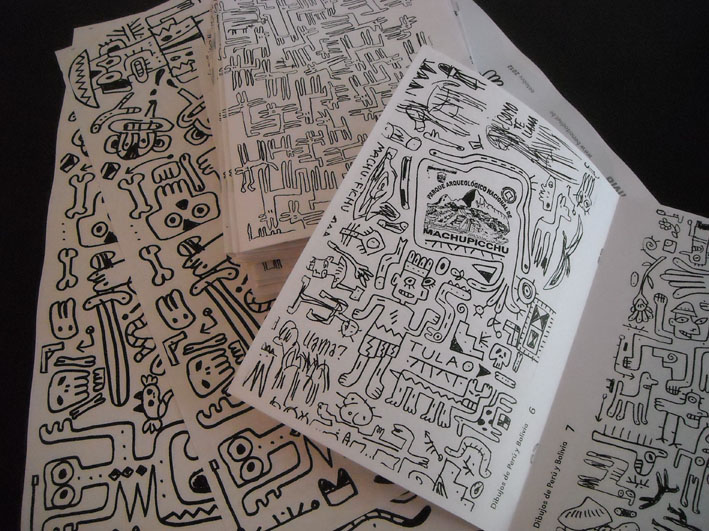 COMO
TE
LLAMA
MACHU-PICHU
PARQUE ARQUEOLÓGICO NACIONAL DE
MACHUPICCHU
TULAO
Dibujos de Perú y Bolivia 6
Dibujos de Perú y Bolivia 7